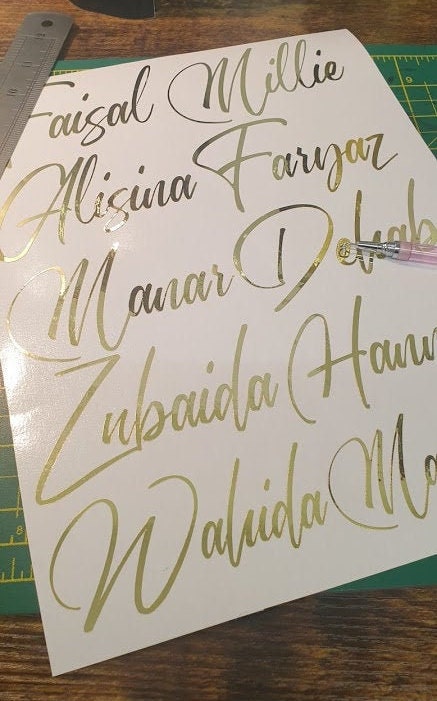 Faisal Millie
Alisina Faryaz
Manar
Zubaida
Wahida